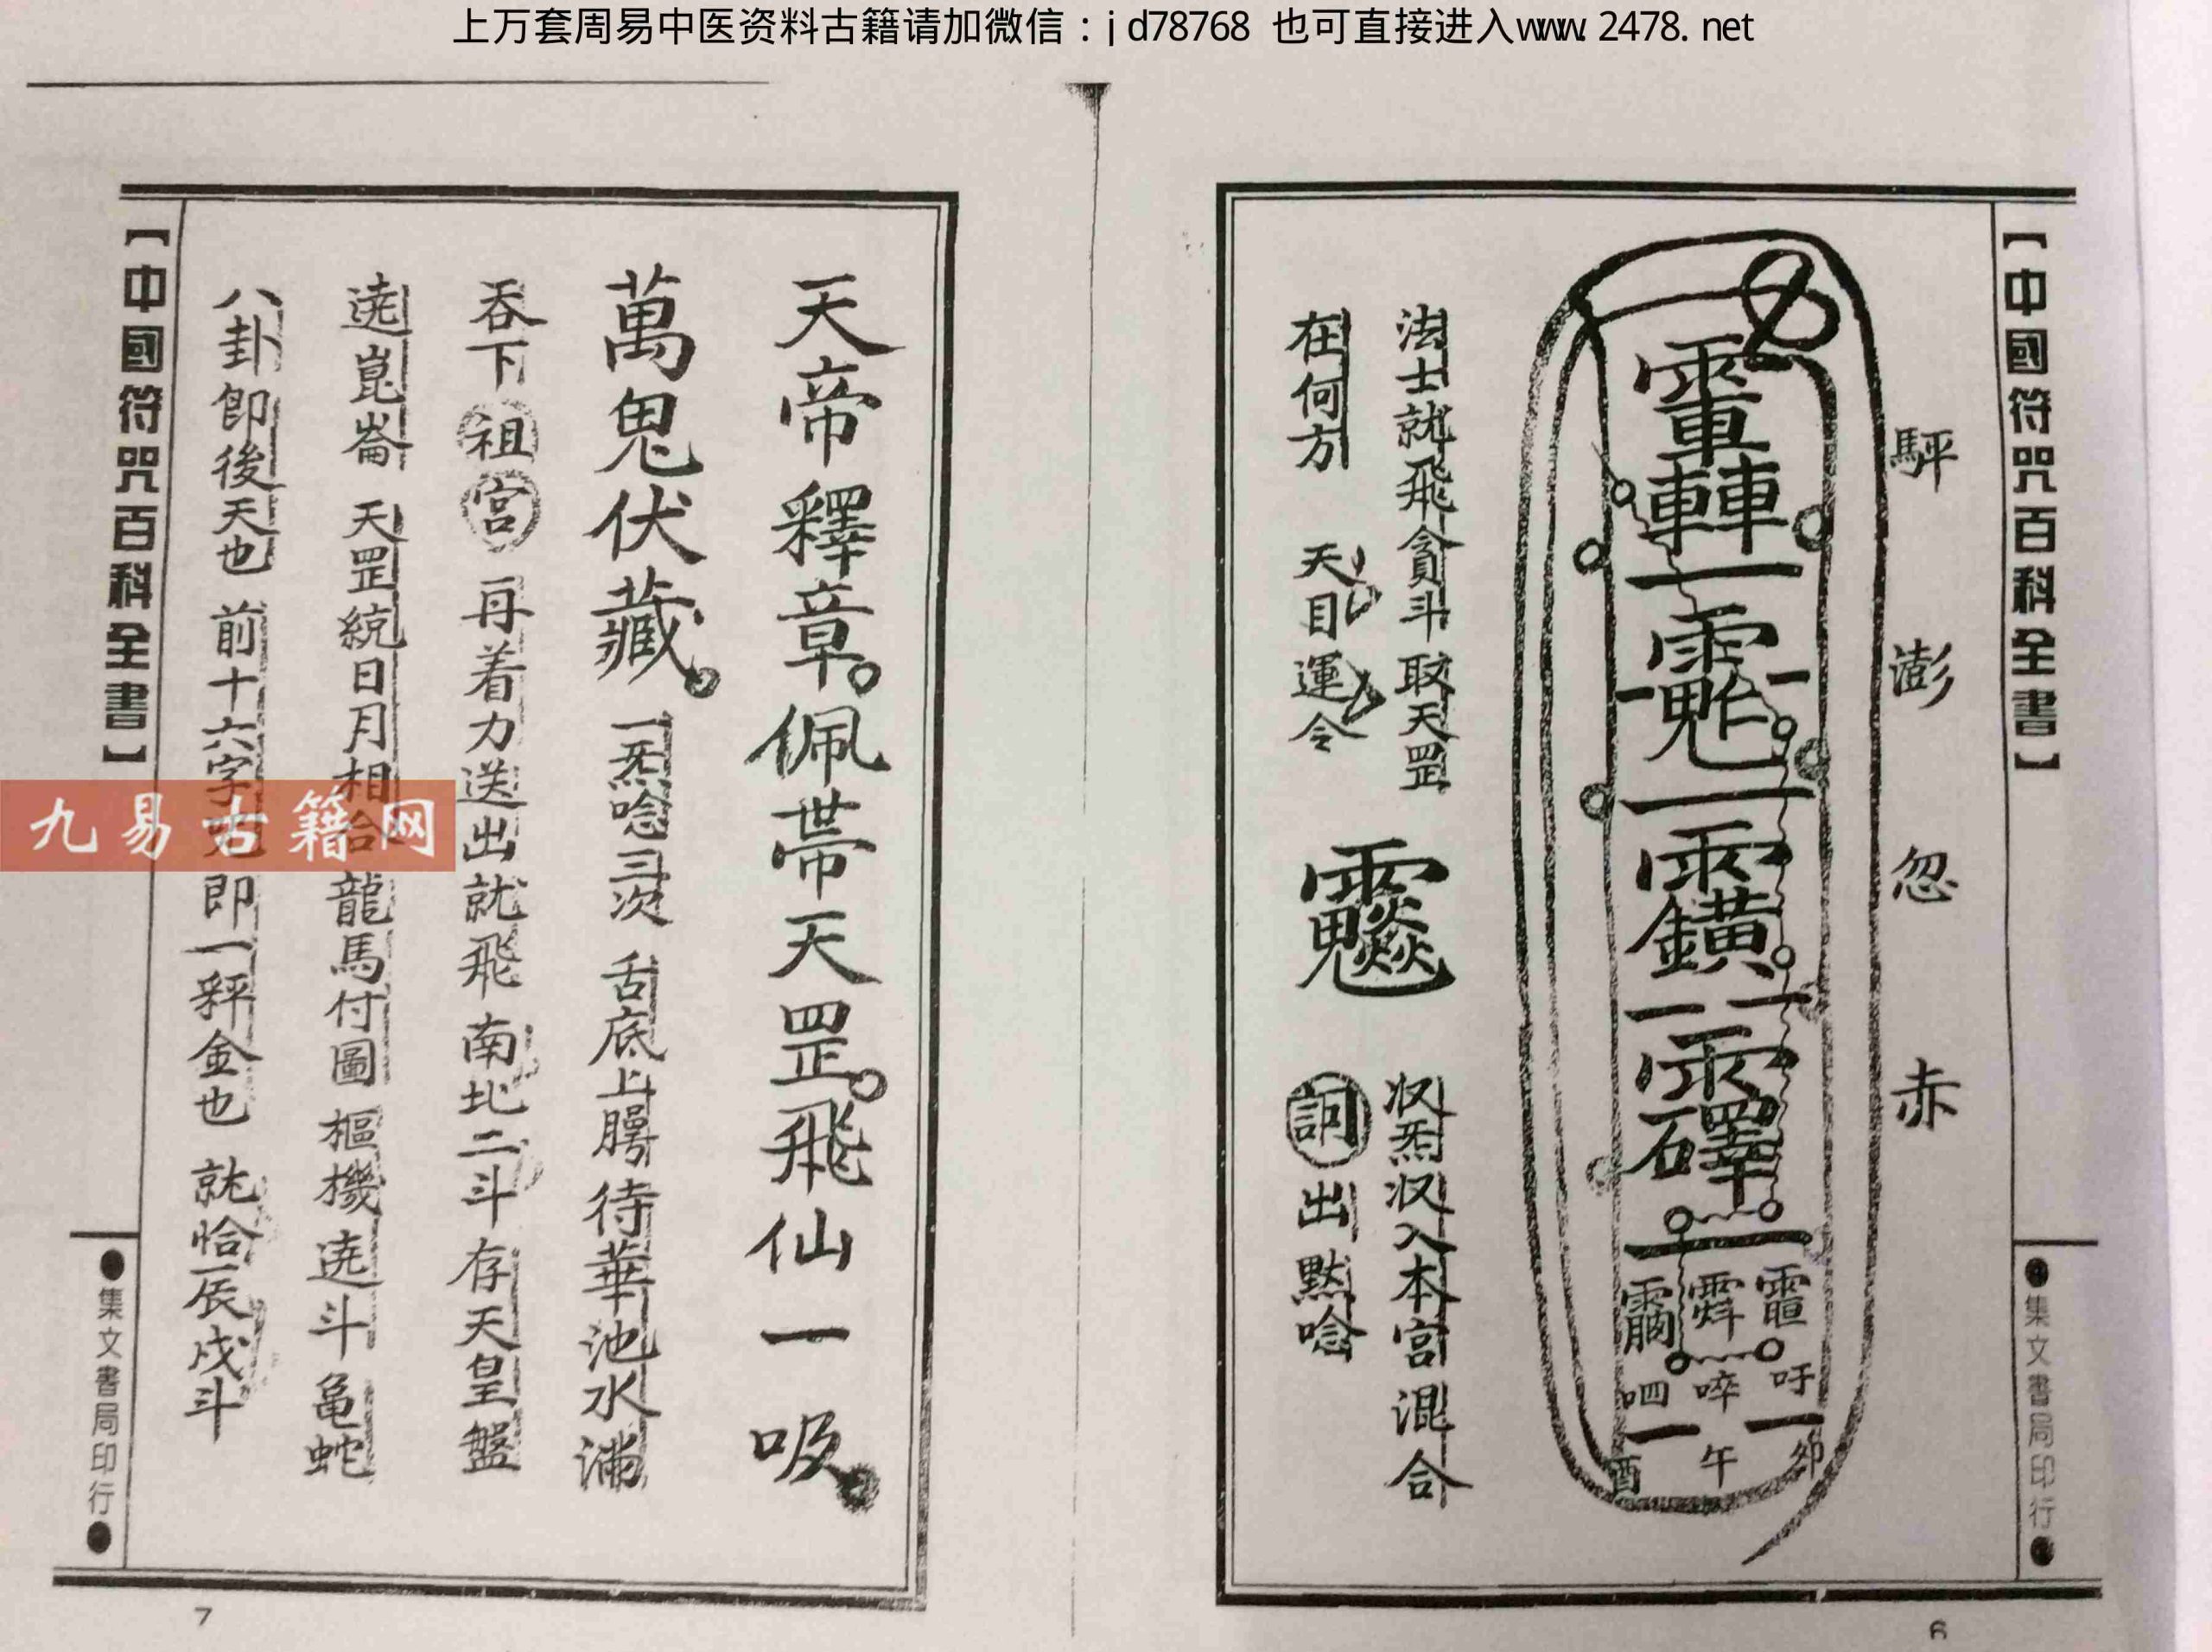 上万套周易中医资料古籍请加微信：jd78768 也可直接进入www.2478.net
【中國符咒百科全書】
●集文書局印行●
澎
忽
赤
吁
啐
呬
卯
午
酉
法士就飛貪斗 取天罡
炁 入本宮混合
在何方 天目運令
詞出 黙唸
6
天帝釋章。佩帶天罡。飛仙一吸。
萬鬼伏藏。一炁唸三次 舌底上腭待華池水滿
吞下祖宮 再着力送出就飛 南北二斗 存天皇盤
遶崑崙 天罡統日月相合 龍馬付圖 樞機遶斗 龜蛇
八卦即後天也 前十六字 即一秤金也 就恰辰戌斗
【中國符咒百科全書】
●集文書局印行●
7
九易古籍网